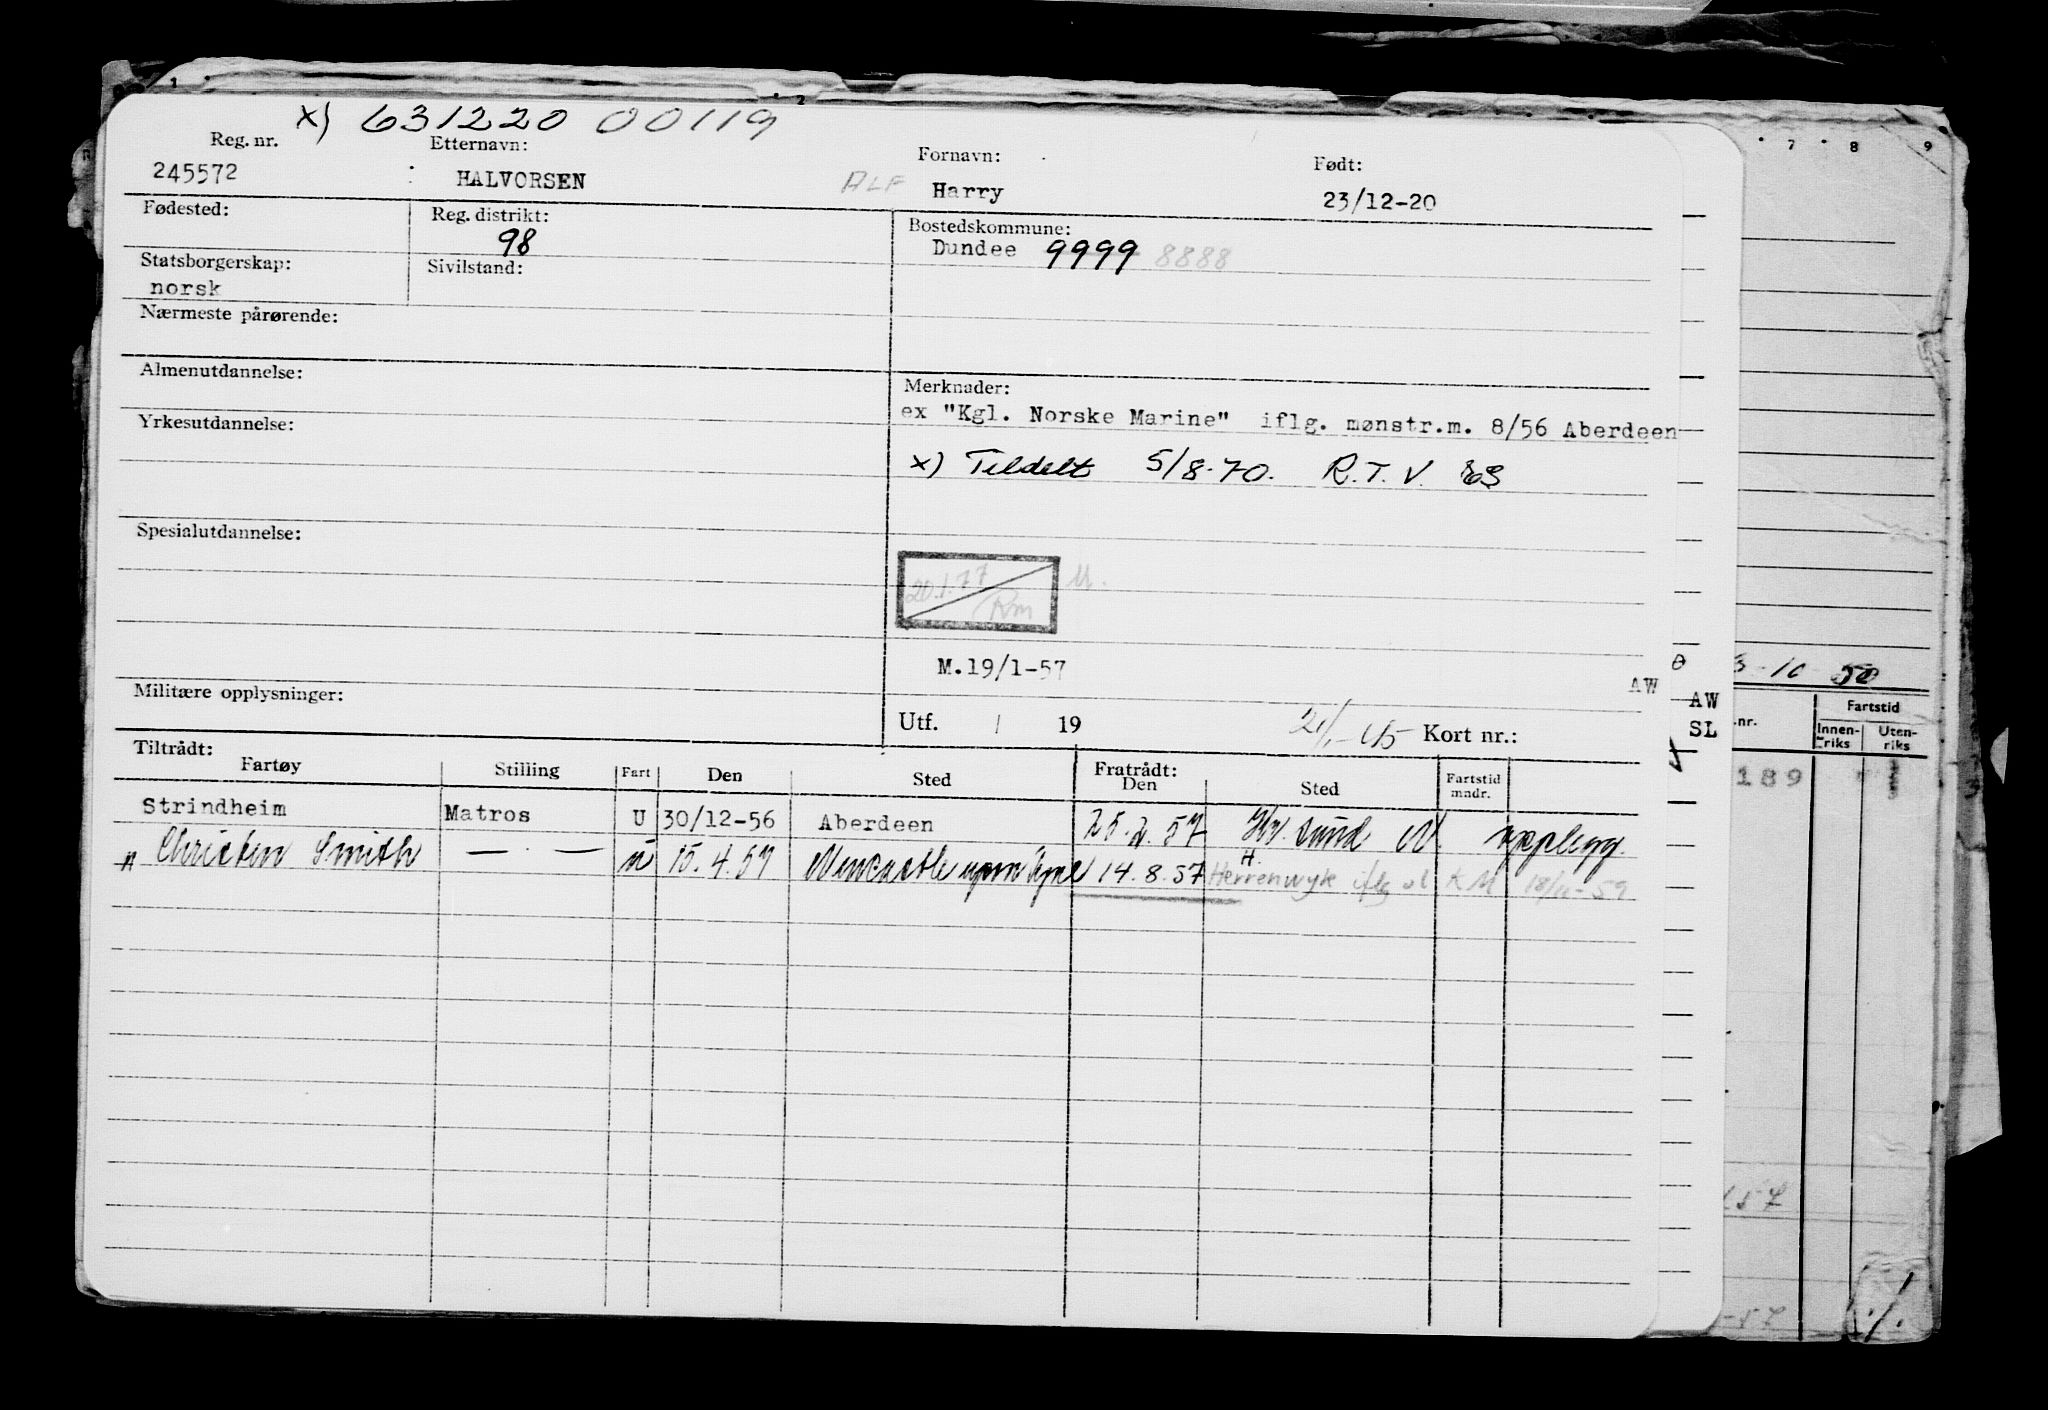 x) 631220 00119
Reg. nr. Etternavn: Fornavn: Født:
245572 HALVORSEN ALF Harry 23/12-20
Fødested: Reg. distrikt: Bostedskommune:
98 Dundee 9999 8888
Statsborgerskap: Sivilstand:
norsk
Nærmeste pårørende:
Almenutdannelse: Merknader:
ex "Kgl. Norske Marine" iflg. mønstr.m. 8/56 Aberdeen
Yrkesutdannelse:
x) Tildelt 5/8-70. R.T.V.
Spesialutdannelse:
20.1.77 Rm
M.19/1-57
AW
Militære opplysninger:
Utf. / 19 Kort nr.:
Tiltrådt: Fratrådt:
Fartøy Stilling Fart Den Sted Den Sted Fartstid mndr.
Strindheim Matros U 30/12-56 Aberdeen 25.2.57 Kr. sund N opplegg.
Christen Smith — . — u 15.4.57 Newcastle upon Tyne 14.8.57 Herrenwyk iflg KM 18/11-59
1 2 7 8 9
AW
SL
-10 50
.nr. Fartstid
Innen-riks Uten-riks
189
157
-57